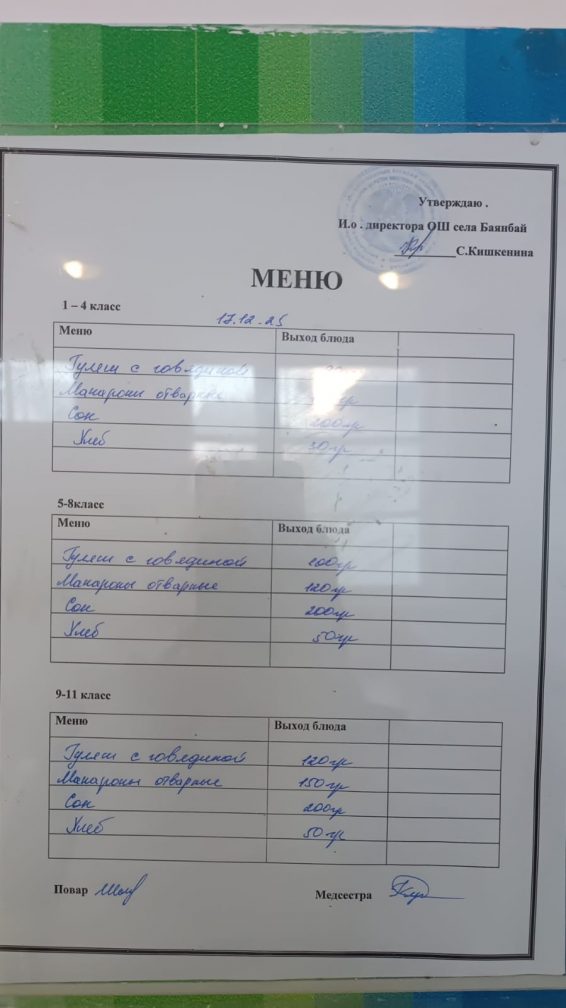 Утверждаю .
И.о . директора ОШ села Баянбай
С.Кишкенина
МЕНЮ
1 – 4 класс
17.12.25
Меню Выход блюда
Гуляш с говядиной
Макароны отварные
Сок 200гр
Хлеб 30гр
5-8класс
Меню Выход блюда
Гуляш с говядиной 100гр
Макароны отварные 120гр
Сок 200гр
Хлеб 50гр
9-11 класс
Меню Выход блюда
Гуляш с говядиной 120гр
Макароны отварные 150гр
Сок 200гр
Хлеб 50гр
Повар Медсестра